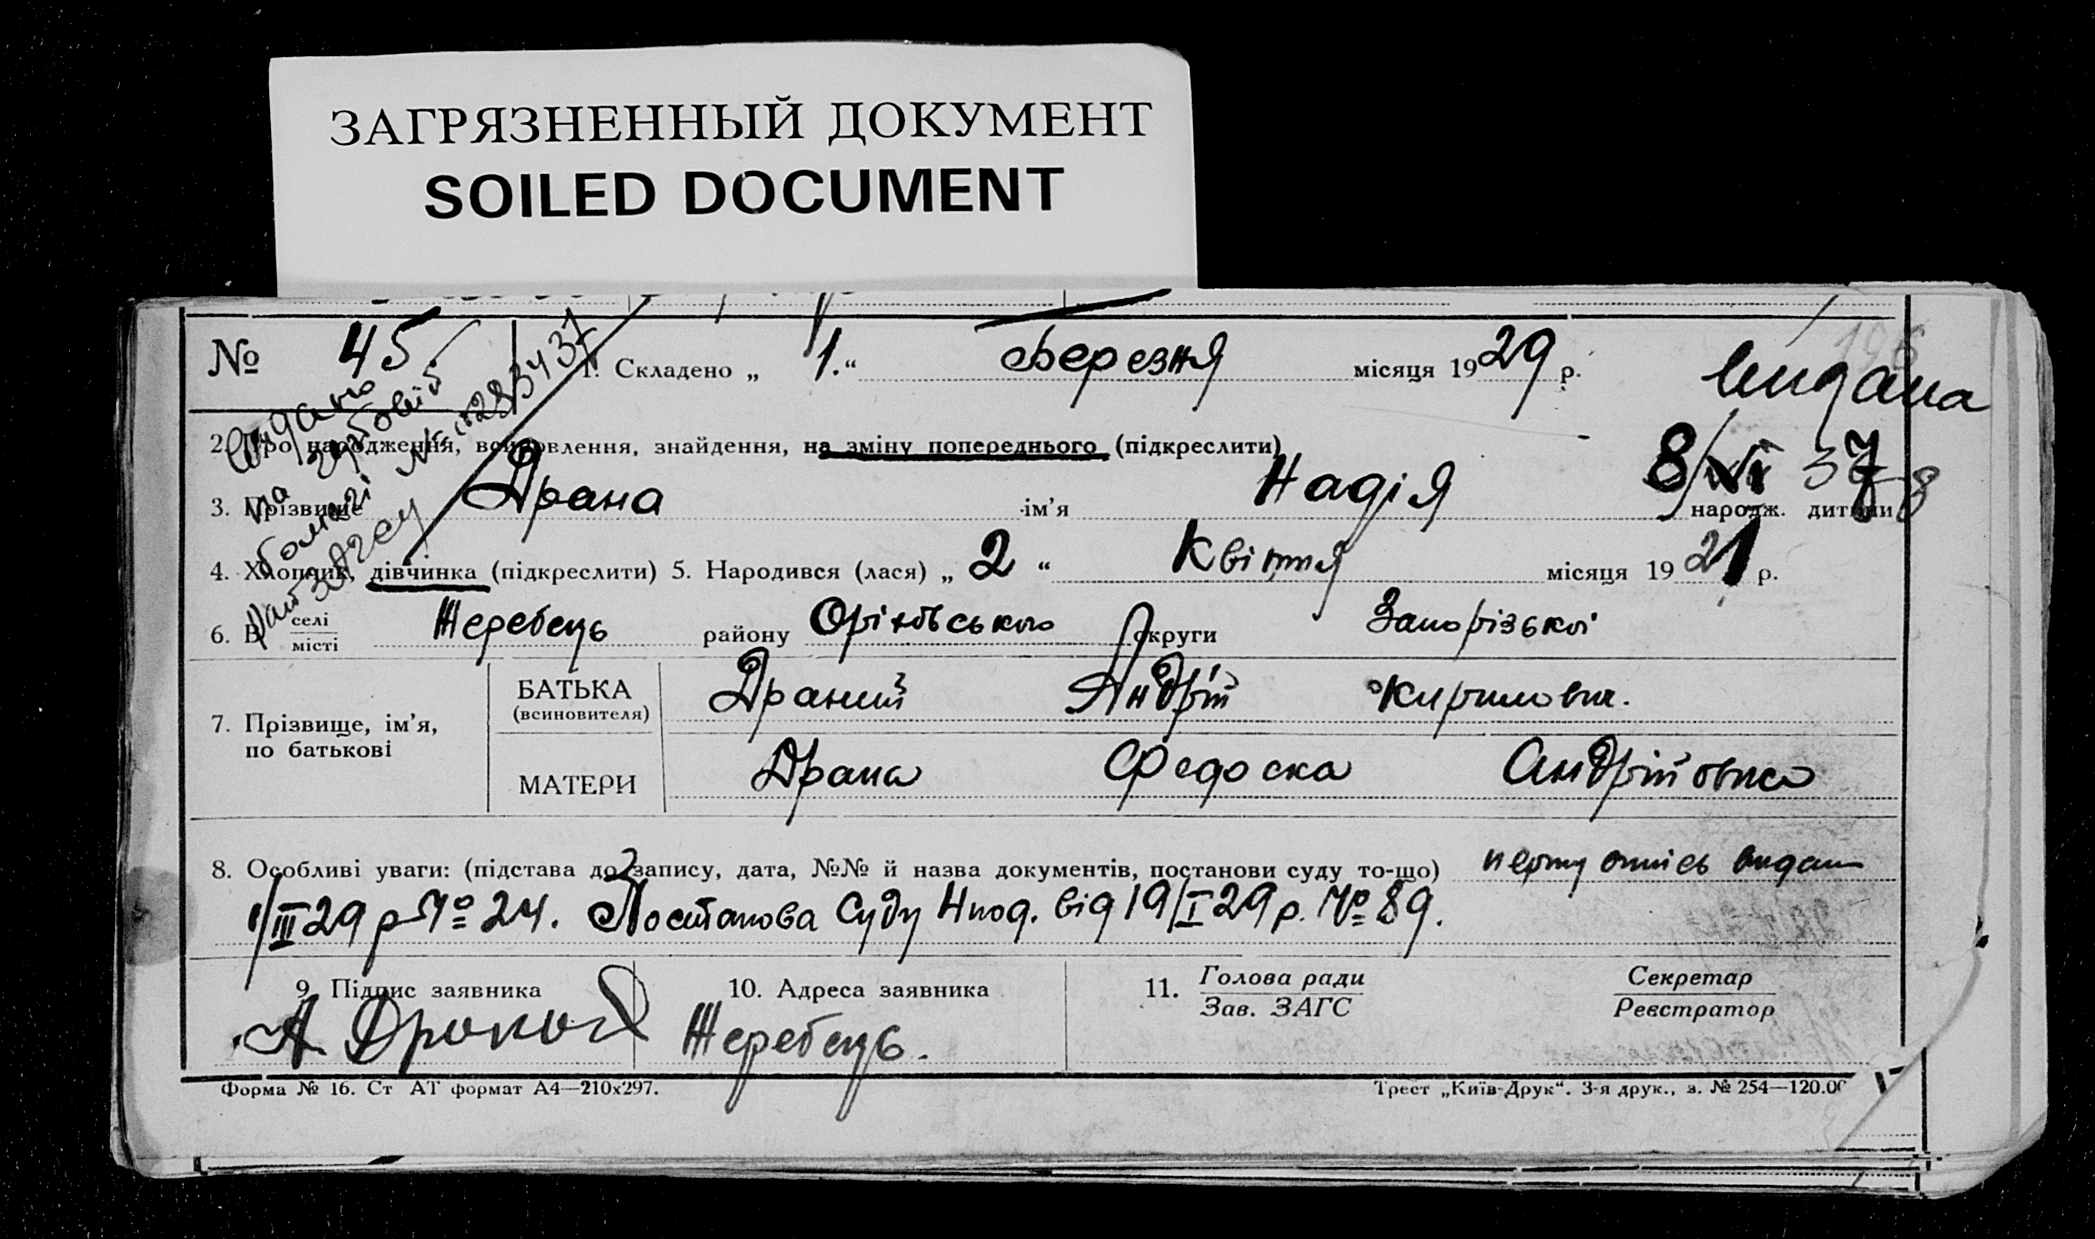 ЗАГРЯЗНЕННЫЙ ДОКУМЕНТ
SOILED DOCUMENT
№ 45
1. Складено „ 1. “ Березня місяця 1929 р.
видана
8/VI 37
2. Про народження, всиновлення, знайдення, на зміну попереднього (підкреслити)
3. Прізвище Драна ім’я Надія народж. дитини
4. Хлопчик, дівчинка (підкреслити) 5. Народився (лася) „ 2 “ Квітня місяця 1921 р.
6. В селі Жеребець району Оріхівського округи Запорізької
місті
7. Прізвище, ім’я, по батькові
БАТЬКА (всиновителя) Драний Андрій Кирилович.
МАТЕРИ Драна Федоска Андріївна
8. Особливі уваги: (підстава до запису, дата, №№ й назва документів, постанови суду то-що) видан
1/III 29 р № 24. Постанова Суду від 19/I 29 р. № 89.
9. Підпис заявника 10. Адреса заявника 11. Голова ради Секретар
Зав. ЗАГС Реєстратор
А Жеребець.
Форма № 16. Ст АТ формат А4—210х297. Трест „Київ-Друк“. 3-я друк., з. № 254—120.00